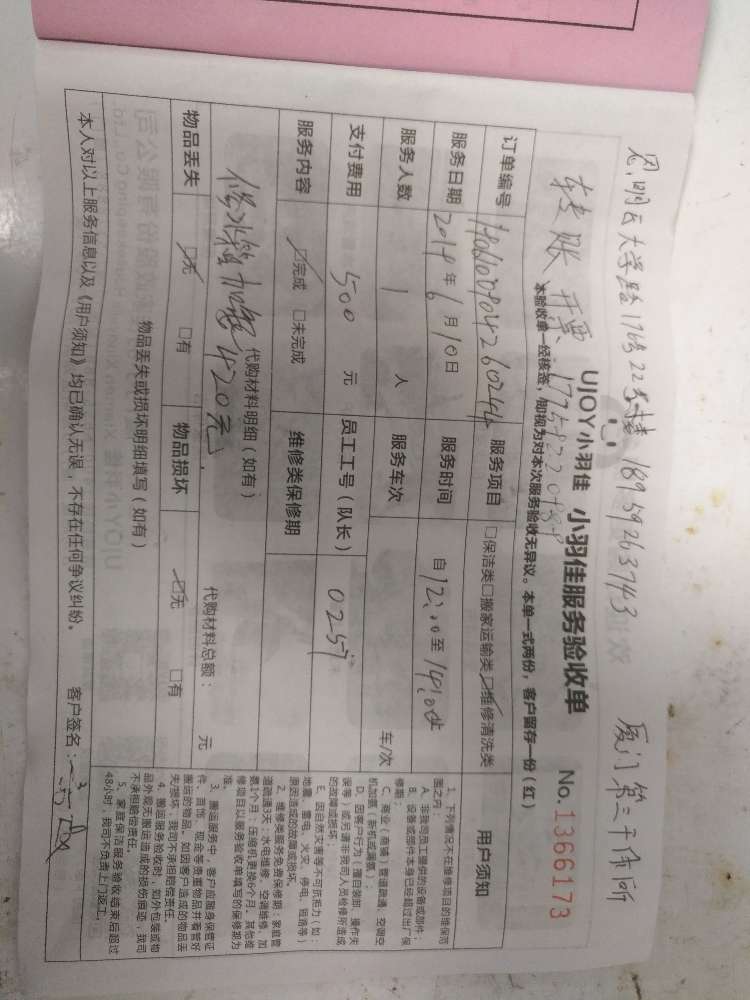 思明区大学路176号22 18959263743 厦门第二干休所
转账 开票
UJOY小羽佳 小羽佳服务验收单 No.1366173
本验收单一经核签，即视为对本次服务验收无异议。本单一式两份，客户留存一份（红）
订单编号 服务项目 □保洁类□搬家运输类☑维修清洗类
服务日期 2019年6月10日 服务时间 自12:00至14:10
服务人数 1 人 服务车次 车/次
支付费用 500 元 员工工号（队长） 0257
服务内容 ☑完成 □未完成 维修类保修期
代购材料明细（如有） 代购材料总额： 元
420元
物品丢失 ☑无 □有 物品损坏 ☑无 □有
物品丢失或损坏明细填写（如有）
本人对以上服务信息以及《用户须知》均已确认无误，不存在任何争议纠纷。 客户签名：
用户须知
1、下列情况不在维修项目的维保范
围之内：
A、非我司员工提供的设备或部件；
B、设备或部件本身已经超过出厂保
修期；
C、商业（商铺）管道疏通、空调空
机加氨（新机或漏氨）；
D、因客户行为（擅自装卸、操作失
误等）或另请非我司人员检修所造成
的故障或损坏；
E、因自然灾害等不可抗拒力（如：
地震、雷电、火灾、停电、短路等）
原因造成的故障或损坏。
2、维修类服务免费保修期：家庭管
道疏通3天，水电维修、空调维修、加
氨1个月，压缩机更换6个月。其他维
修项目以服务验收单填写的保修期为
准。
3、搬运服务中，客户应随身保管证
件、首饰、现金等贵重物品并看管好
搬运的物品，如因客户造成的物品丢
失/损坏，我司不承担赔偿责任。
4、搬运服务验收时，如外包装或物
品外观无搬运造成的损伤痕迹，我司
不承担赔偿责任。
5、家庭保洁服务验收结束后超过
48小时，我司不负责上门返工。